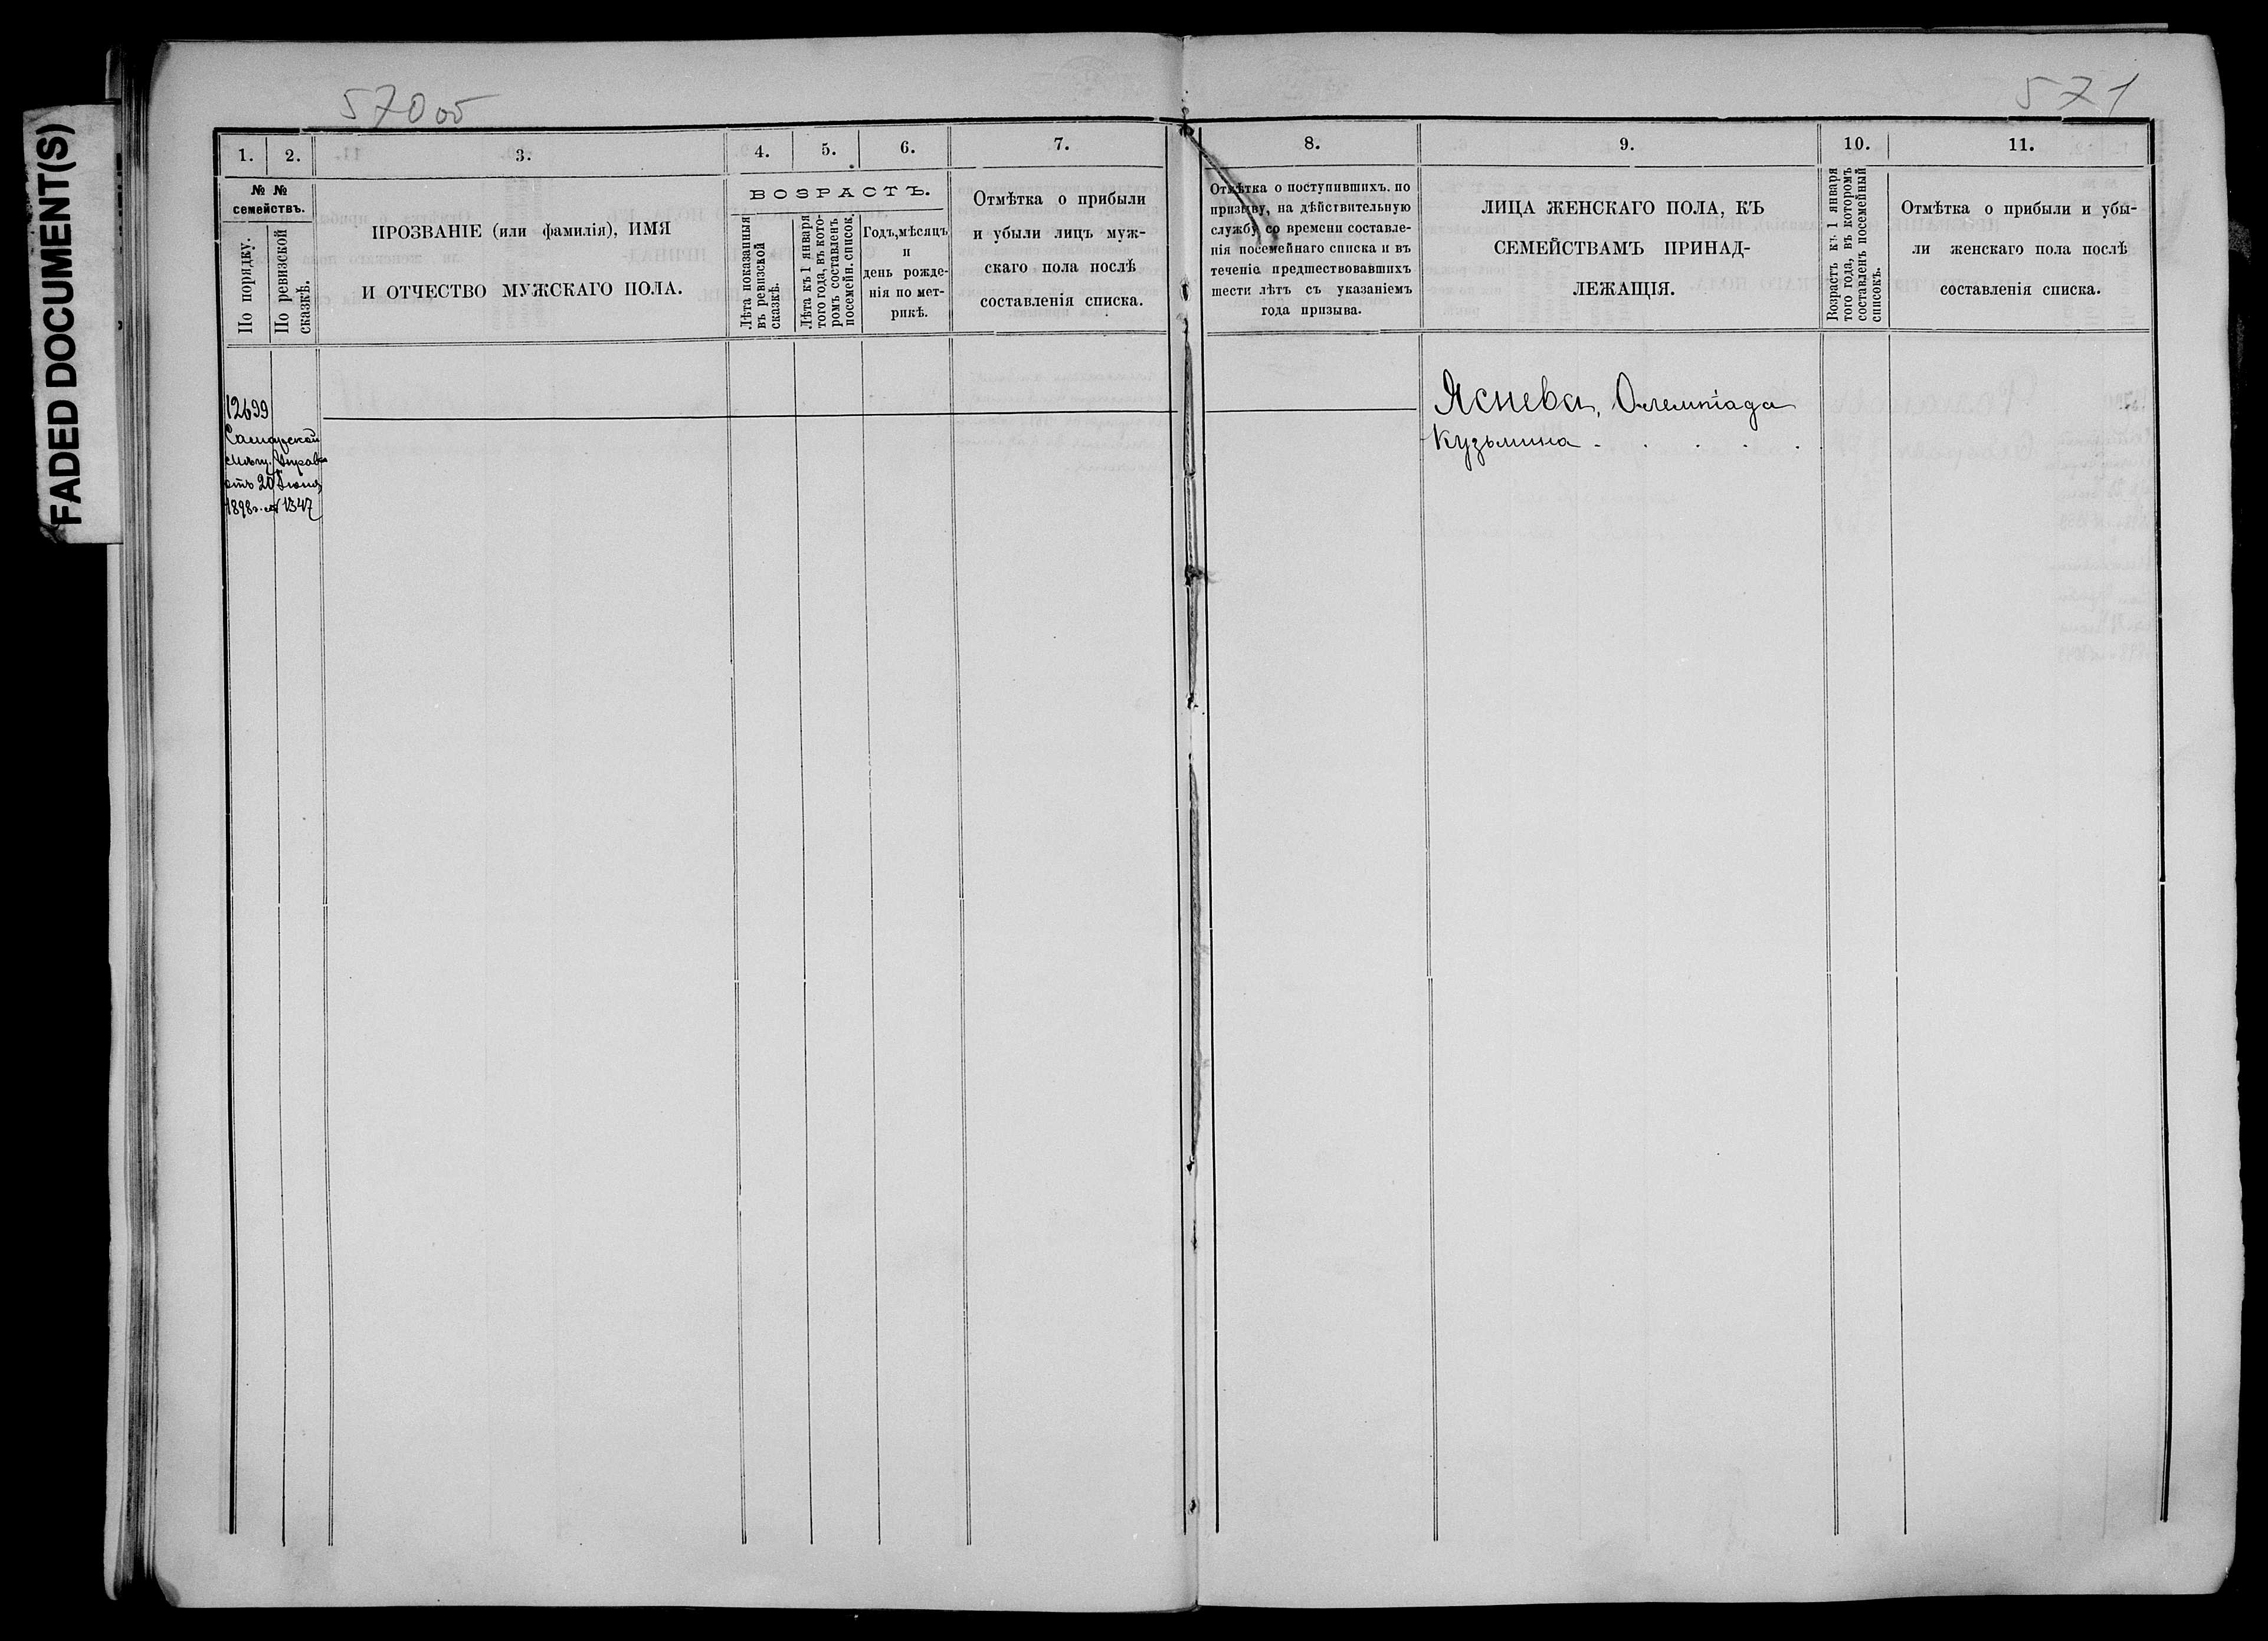 FADED DOCUMENT(S)
570 об
571
1.
2.
3.
4.
5.
6.
7.
8.
9.
10.
11.
№ №
семействъ.
По порядку.
По ревизской
сказкѣ.
ПРОЗВАНІЕ (или фамилія), ИМЯ
И ОТЧЕСТВО МУЖСКАГО ПОЛА.
ВОЗРАСТЪ.
Лѣта показанныя
въ ревизской
сказкѣ.
Лѣта къ 1 января
того года, въ кото-
ромъ составленъ
посемейн. список.
Годъ, мѣсяцъ
и
день рожде-
нія по мет-
рикѣ.
Отмѣтка о прибыли
и убыли лицъ муж-
скаго пола послѣ
составленія списка.
Отмѣтка о поступившихъ. по
призыву, на дѣйствительную
службу со времени составле-
нія посемейнаго списка и въ
теченіе предшествовавшихъ
шести лѣтъ съ указаніемъ
года призыва.
ЛИЦА ЖЕНСКАГО ПОЛА, КЪ
СЕМЕЙСТВАМЪ ПРИНАД-
ЛЕЖАЩІЯ.
Возрастъ къ 1 января
того года, въ которомъ
составленъ посемейный
списокъ.
Отмѣтка о прибыли и убы-
ли женскаго пола послѣ
составленія списка.
12699
Самарской
Мѣщ. Управы
отъ 20 Іюня
1898 г. № 1347
Яснева, Олемпіада
Кузьмина . . . . .